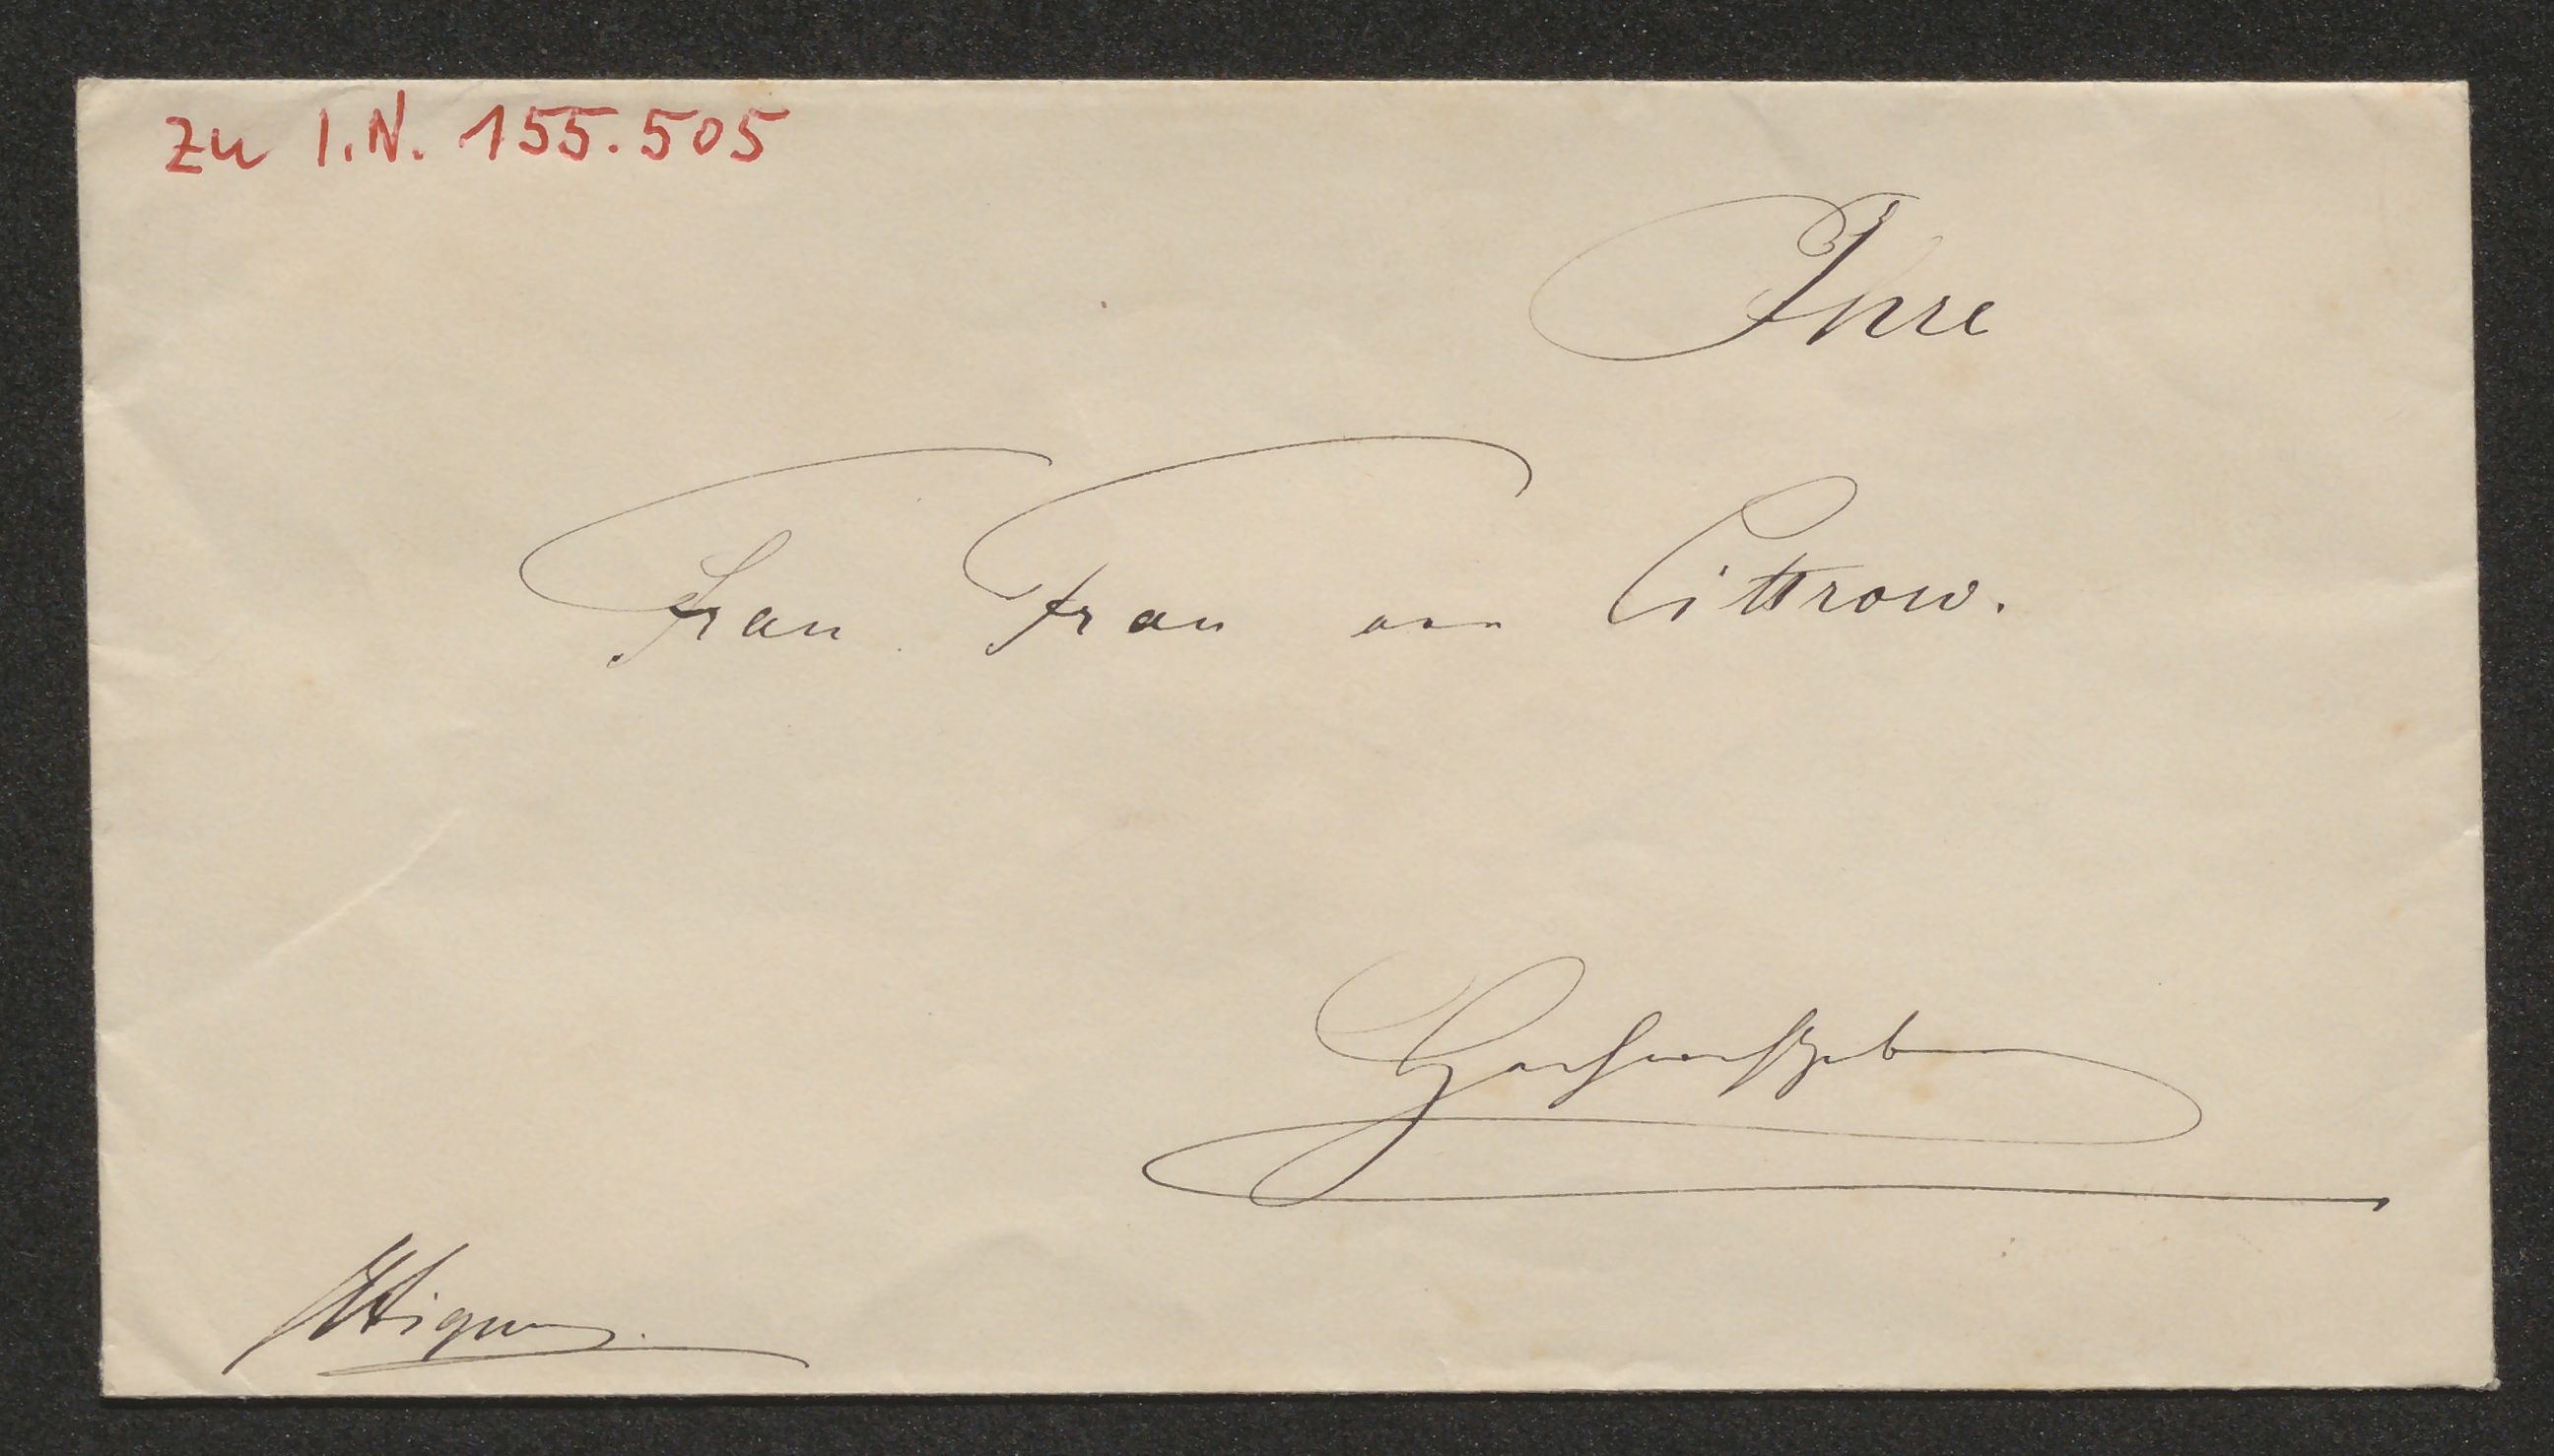 zu I.N. 155.505
Ihre
Frau Frau von Littrow.
Hochwohlgeb